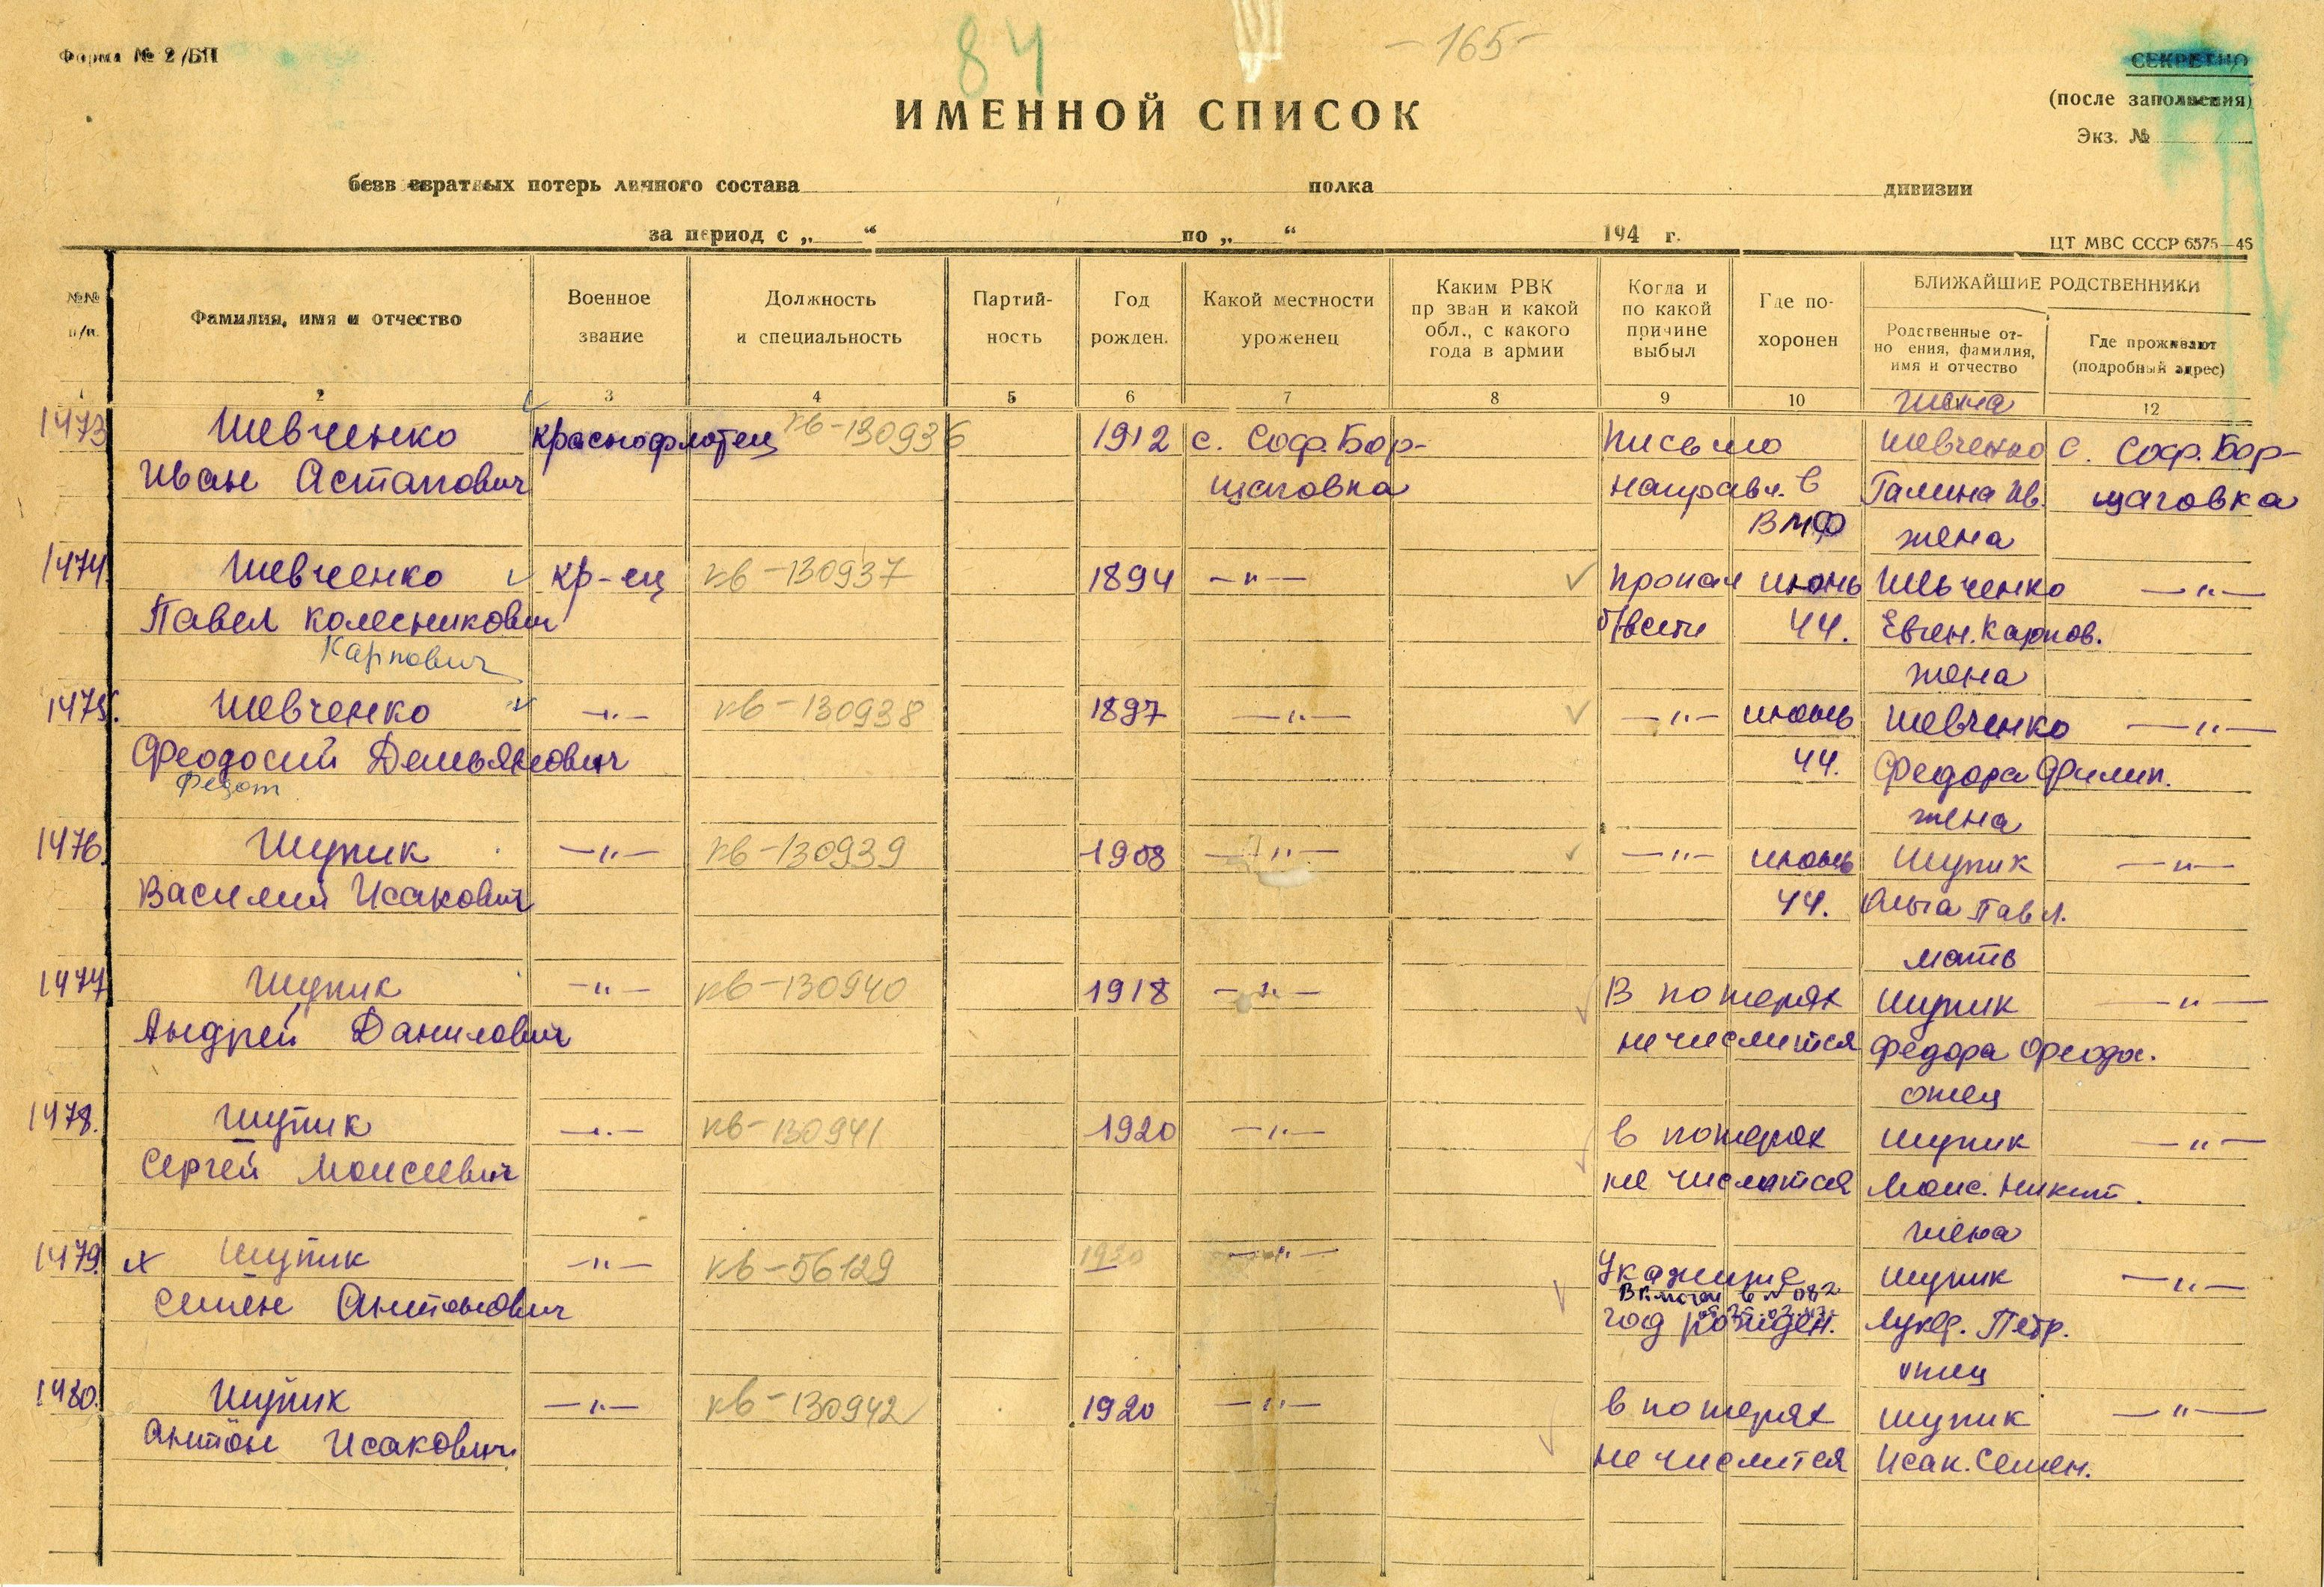 Форма № 2/БП
84
- 165 -
СЕКРЕТНО
(после заполнения)
Экз. №
ИМЕННОЙ СПИСОК
безвозвратных потерь личного состава полка дивизии
за период с „ “ по „ “ 194 г.
ЦТ МВС СССР 6575—46
№№ п/п.
Фамилия, имя и отчество
Военное звание
Должность и специальность
Партий-
ность
Год рожден.
Какой местности уроженец
Каким РВК
пр зван и какой
обл., с какого
года в армии
Когда и
по какой
причине
выбыл
Где по-
хоронен
БЛИЖАЙШИЕ РОДСТВЕННИКИ
Родственные от-
но ения, фамилия,
имя и отчество
Где проживают
(подробный адрес)
1 2 3 4 5 6 7 8 9 10 12
жена
1473 Шевченко краснофлотец кв-130936 1912 с. Соф. Бор- Письмо Шевченко с. Соф. Бор-
Иван Астапович щаговка направл. в Галина Ив. щаговка
ВМФ жена
1474 Шевченко кр-ец кв-130937 1894 —"— пропал июнь Шевченко —"—
Павел Колесникович б/вести 44. Евген. Карпов.
Карпович жена
1475. Шевченко —"— кв-130938 1897 —"— —"— июнь Шевченко —"—
Феодосий Демьянович 44. Федора Филип.
Федот жена
1476. Шупик —"— кв-130939 1908 —"— —"— июнь Шупик —"—
Василий Исакович 44. Ольга Павл.
мать
1477 Шупик —"— кв-130940 1918 —"— В потерях Шупик —"—
Андрей Данилович не числится Федора Феодос.
отец
1478. Шупик —"— кв-130941 1920 —"— в потерях Шупик —"—
Сергей Моисеевич не числится Моис. Никит.
жена
1479. х Шупик —"— кв-56129 1920 —"— Укажите Шупик —"—
Семен Антонович год рожден. Лукер. Петр.
отец
1480. Шупик —"— кв-130942 1920 —"— в потерях Шупик —"—
Антон Исакович не числится Исак. Семен.